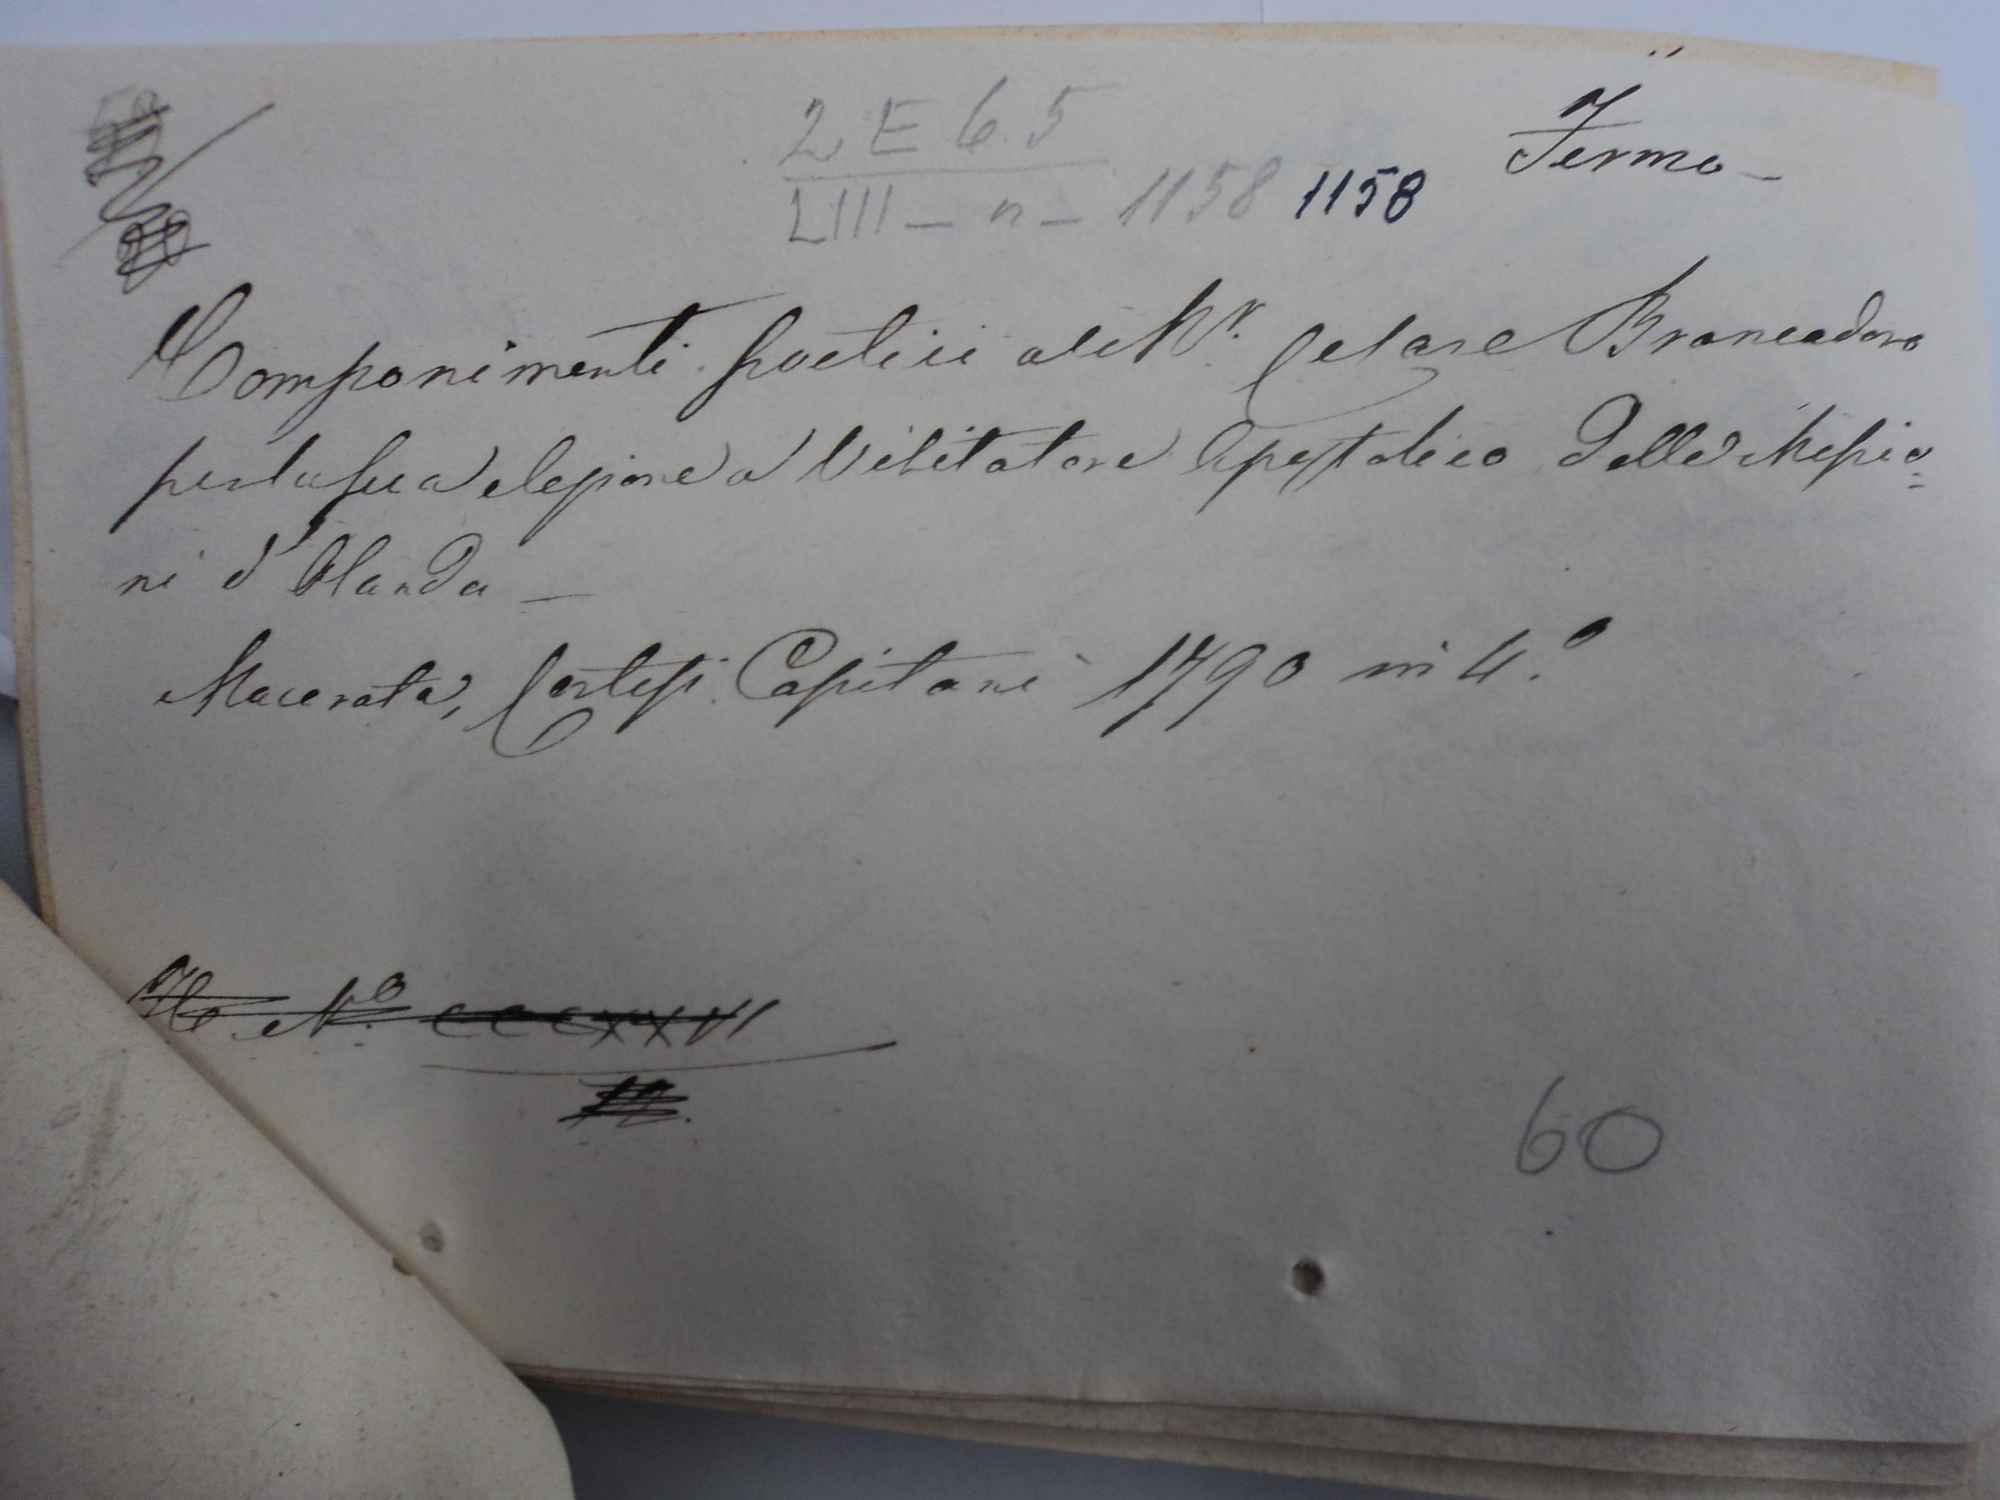 2 E 6. 5
LIII - n - 1158 1158
Fermo -
Componimenti poetici a Mr. Cesare Brancadoro
per la sua elezione a Visitatore Apostolico delle Missio=
ni d'Olanda -
Macerata, Cortesi Capitani 1790 in 4.o
No. CCCXXVI
60